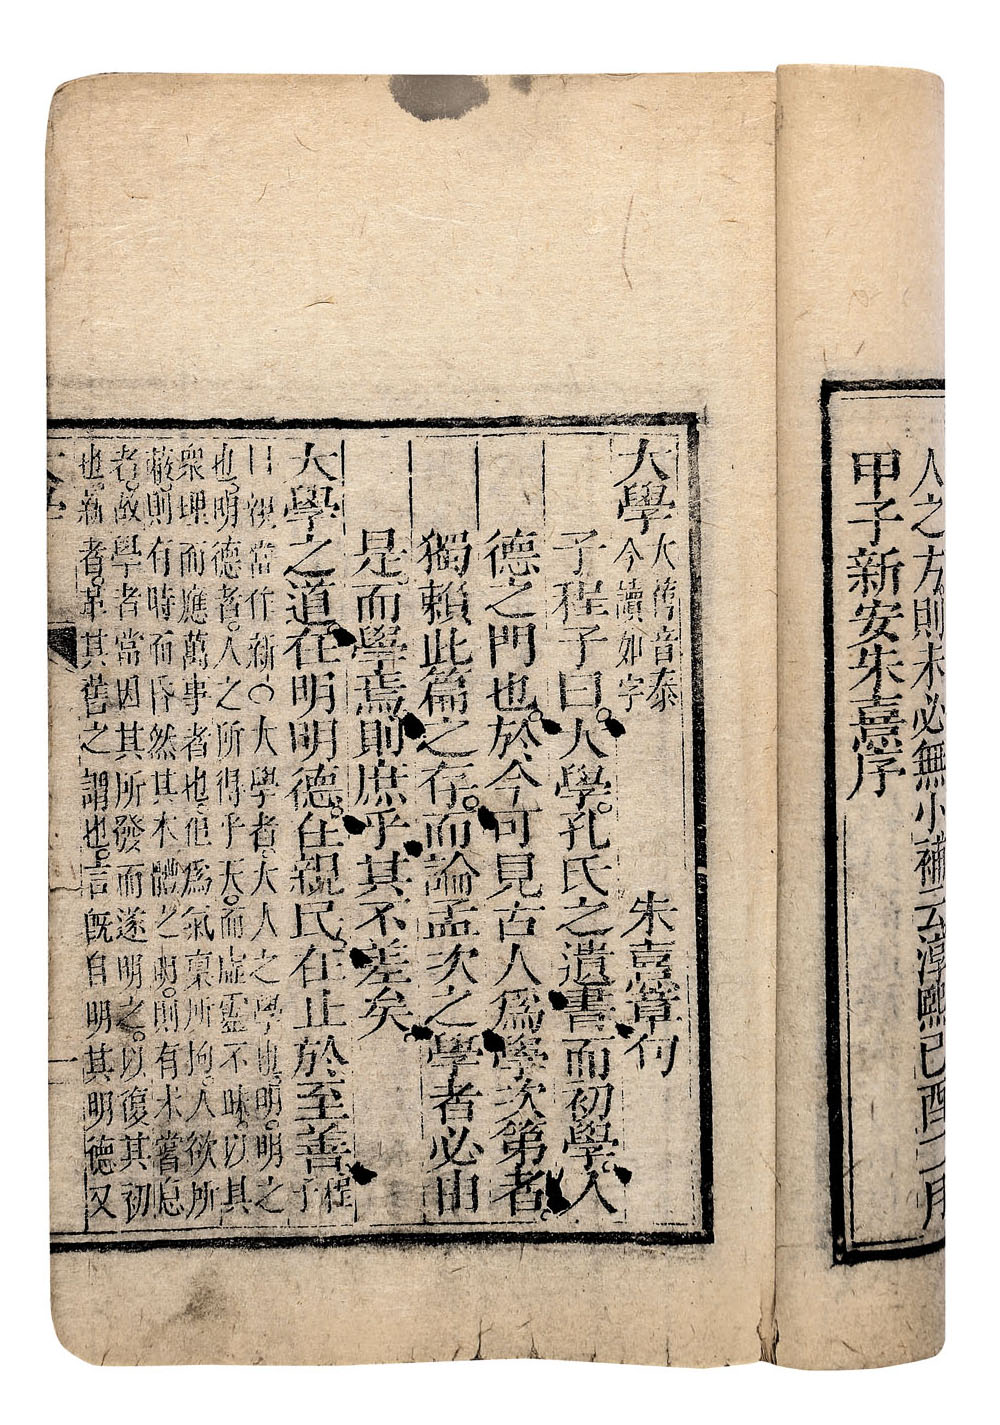 人之方則未必無小補云淳熙己酉二月
甲子新安朱熹序
大學 大舊音泰 今讀如字 朱熹章句
子程子曰大學。孔氏之遺書而初學。入
德之門也。於今可見古人爲學次第者。
獨賴此篇之存。而論孟次之學者必由
是而學焉則庶乎其不差矣。
大學之道。在明明德。在親民。在止於至善。程子
曰親當作新○大學者。大人之學也。明。明之
也。明德者。人之所得乎天。而虛靈不昧。以具
衆理而應萬事者也。但爲氣稟所拘。人欲所
蔽。則有時而昏然其本體之明。則有未嘗息
者。故學者當因其所發而遂明之。以復其初
也。新者。革其舊之謂也。言旣自明其明德又